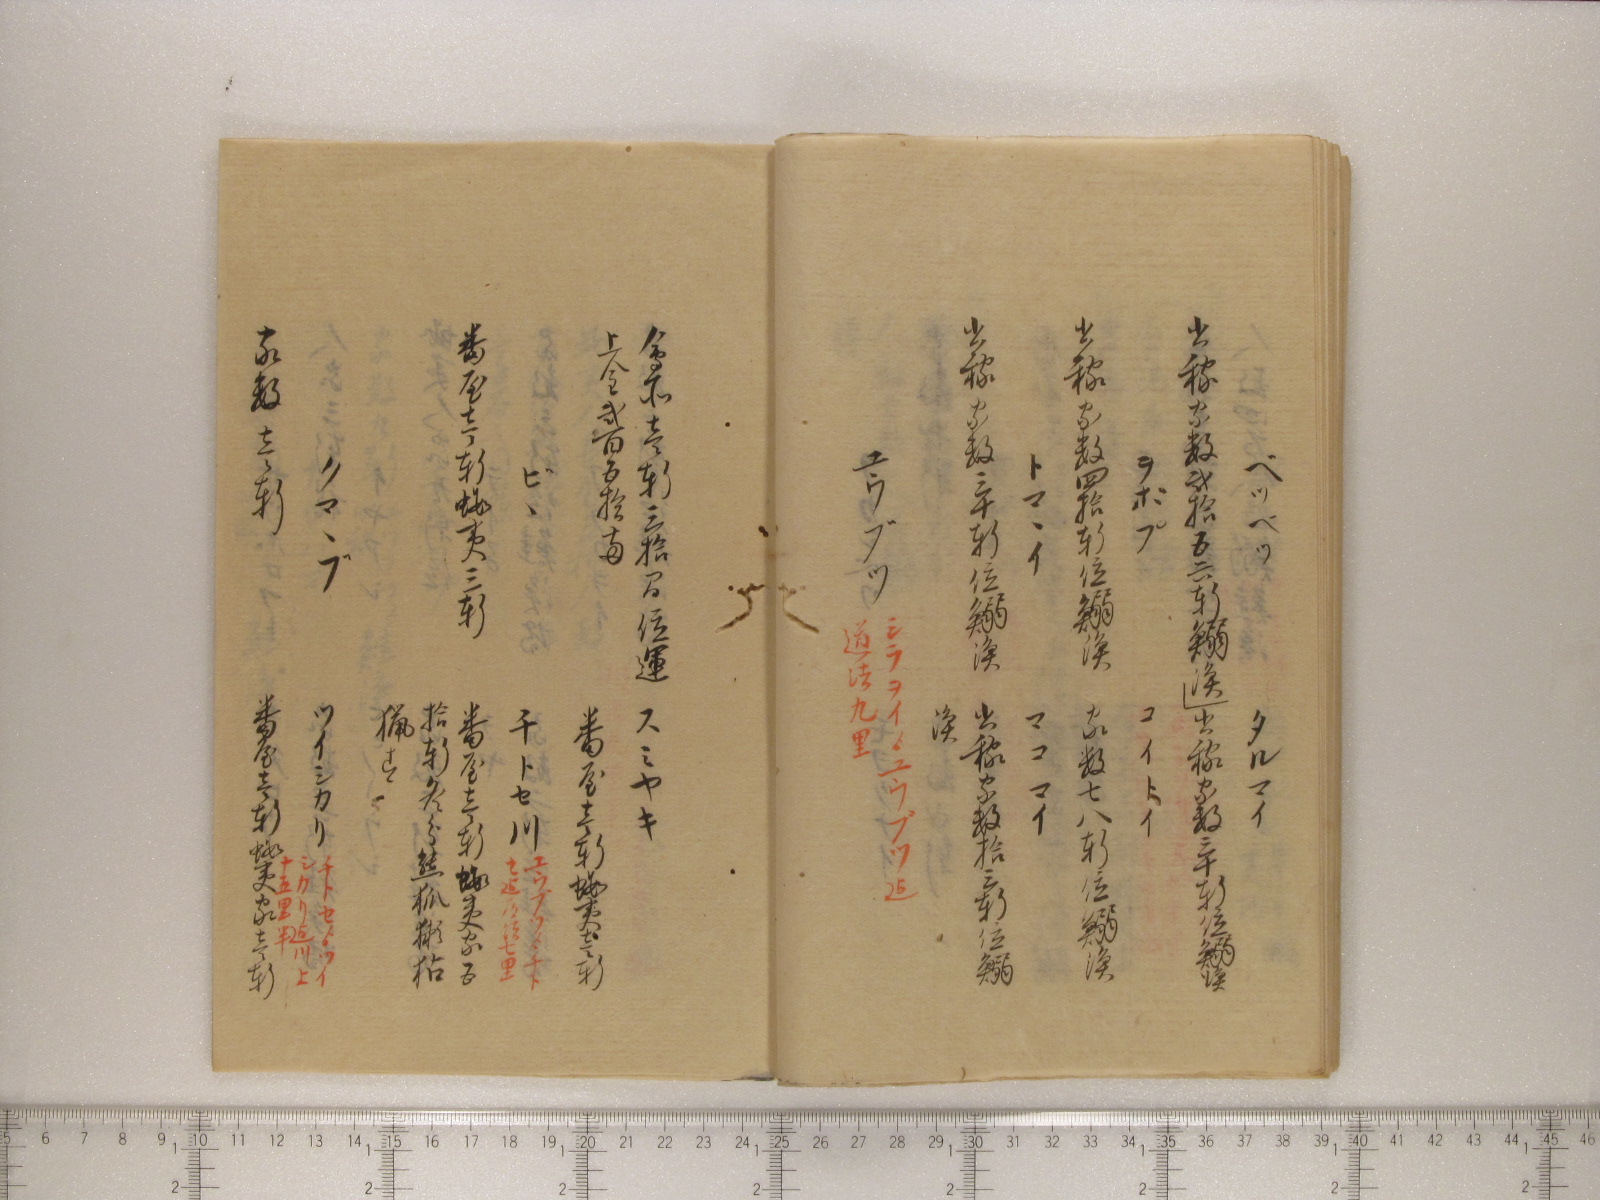 ベツベツ
出稼家数弐拾五六軒鰯漁
ヲボプ
出稼家数四拾軒位鰯漁
トマヽイ
出稼家数三十軒位鰯漁
タルマイ
出稼家数三十軒位鰯漁
コイトイ
家数七八軒位鰯漁
ママコマイ
出稼家数拾三軒位鰯
漁
ユウブツ
シラヲイゟユウブツ迄
道法九里
会所壱軒三拾間位運
上金弐百五拾両
ビヽ
番屋壱軒蝦夷三軒
クマヽブ
家数壱軒
スミヤキ
番屋壱軒蝦夷壱軒
千トセ川
ユウブツゟチト
セ迄道法七里
番屋壱軒蝦夷家五
拾軒冬分熊狐獺拈
猟す
ツイシカリ
チトセゟツイ
シカリ迄川上
十五里半
番屋壱軒蝦夷家壱軒